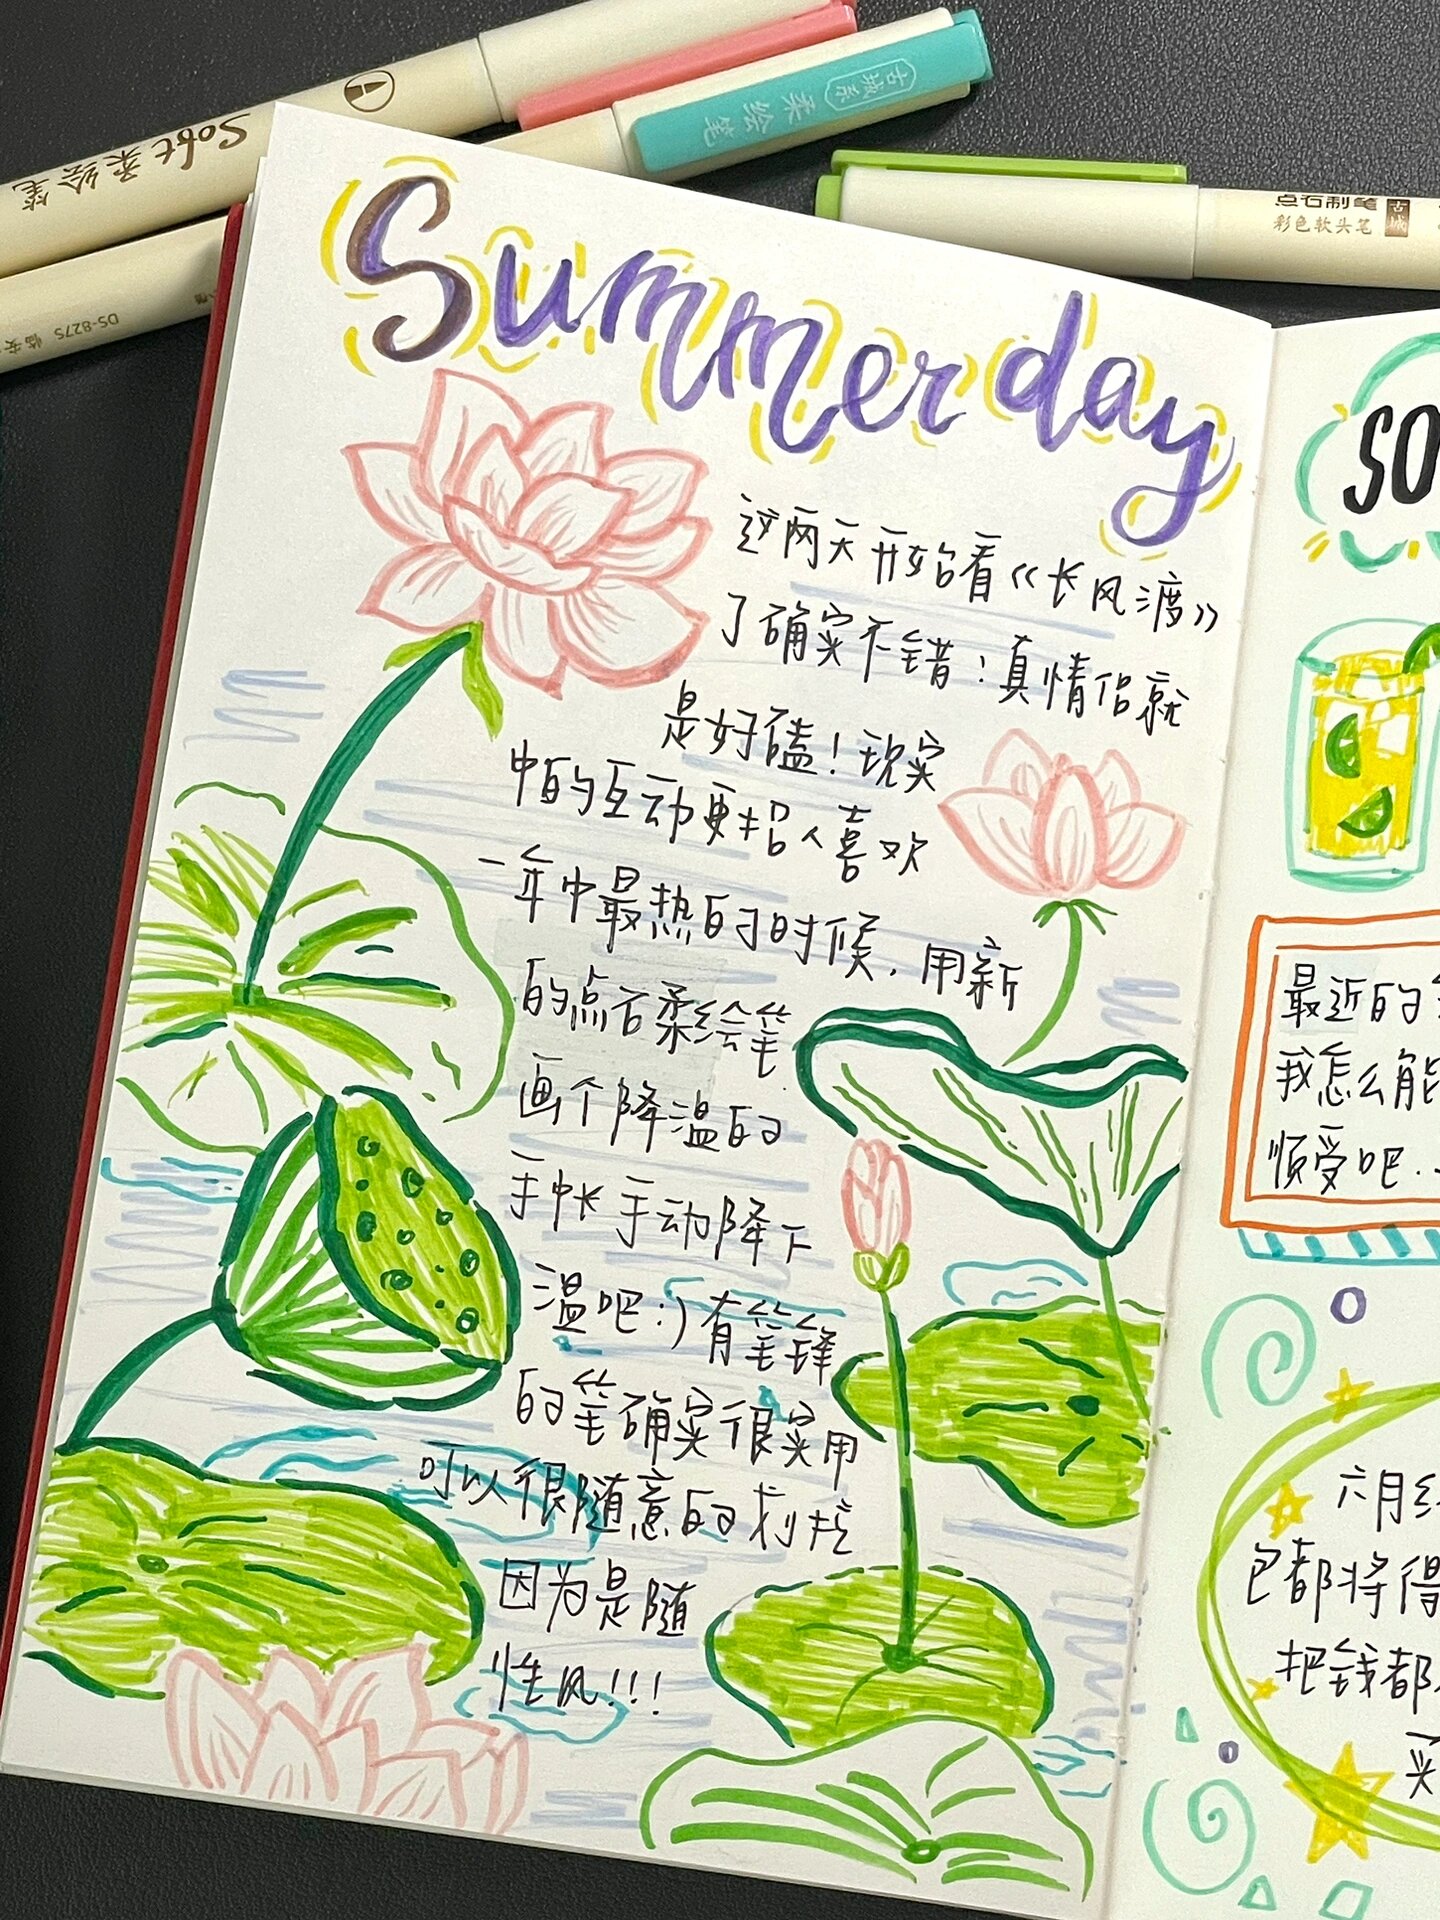 Soft 柔绘笔
古城系 柔绘笔
点石制笔 古城
彩色软头笔
DS-827S 临安
Summer day
这两天开始看《长风渡》
了确实不错！真情侣就
是好磕！现实
中的互动更招人喜欢
一年中最热的时候，用新
的点石柔绘笔
画个降温的
手帐手动降下
温吧:)有笔锋
的笔确实很实用
可以很随意的划拉
因为是随
性风!!!
SO
最近的
我怎么能
顺受吧..
六月
包都将得
把钱都
买